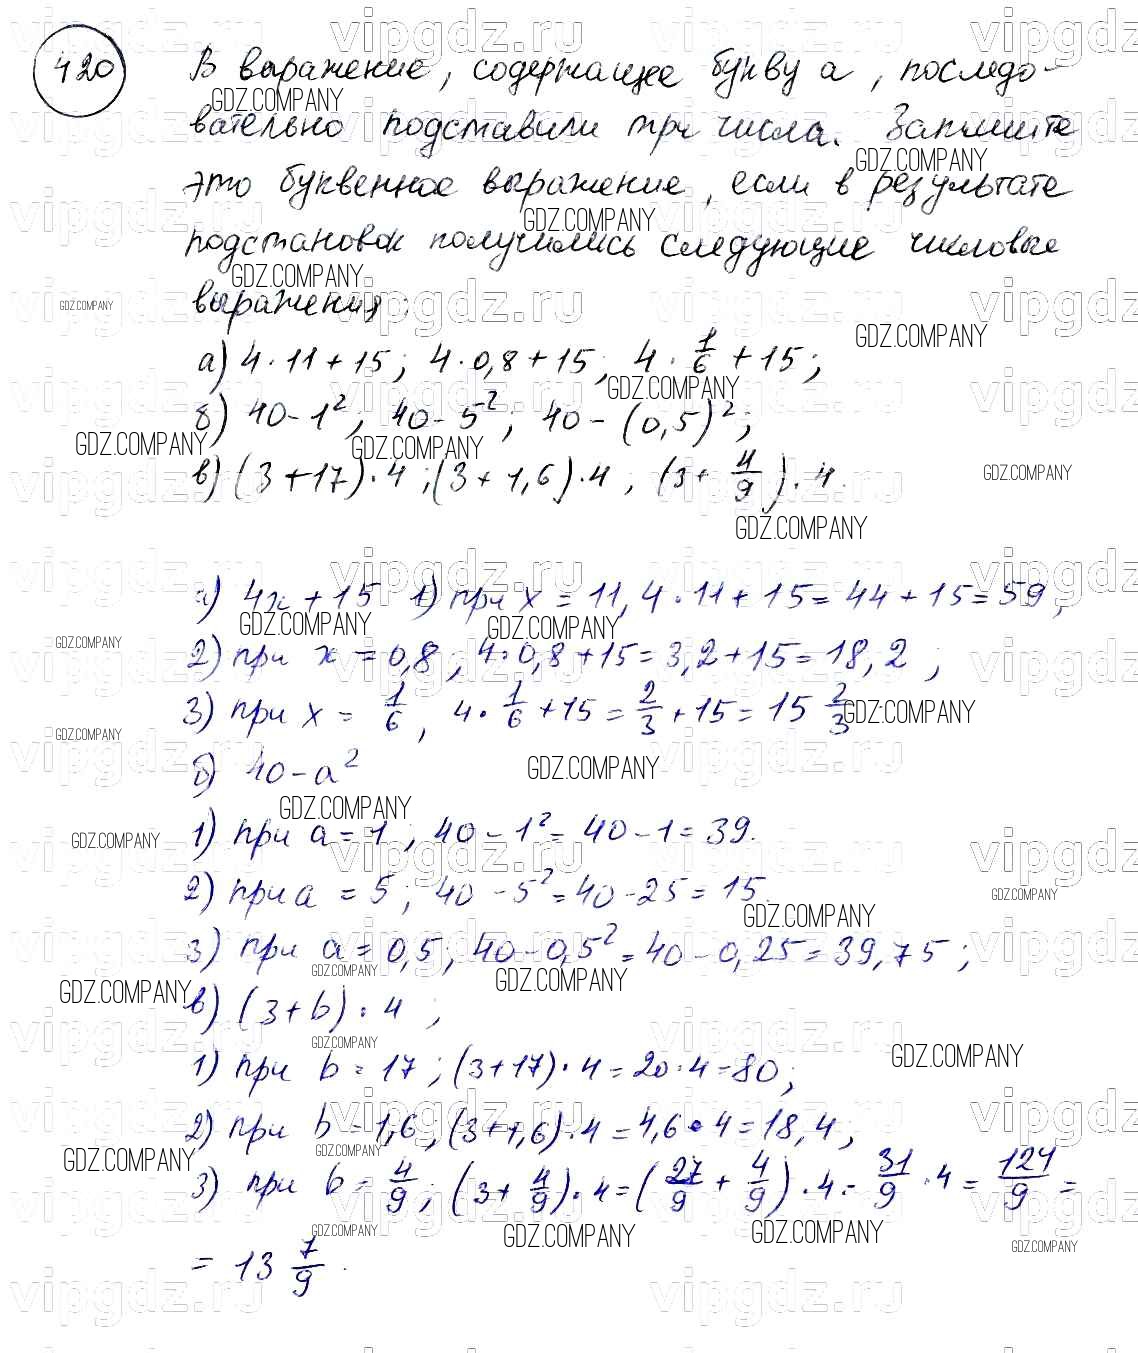 420
В выражение, содержащее букву а, последо-
вательно подставили три числа. Запишите
это буквенное выражение, если в результате
подстановок получились следующие числовые
выражения:
а) 4·11+15; 4·0,8+15; 4·1/6+15;
б) 40-1²; 40-5²; 40-(0,5)²;
в) (3+17)·4; (3+1,6)·4; (3+4/9)·4.
а) 4x+15 1) при x=11, 4·11+15=44+15=59;
2) при x=0,8; 4·0,8+15=3,2+15=18,2;
3) при x=1/6, 4·1/6+15=2/3+15=15 2/3
б) 40-a²
1) при a=1, 40-1²=40-1=39.
2) при a=5; 40-5²=40-25=15.
3) при a=0,5; 40-0,5²=40-0,25=39,75;
в) (3+b)·4;
1) при b=17; (3+17)·4=20·4=80;
2) при b=1,6; (3+1,6)·4=4,6·4=18,4;
3) при b=4/9; (3+4/9)·4=(27/9+4/9)·4=31/9·4=124/9=
=13 7/9.
vipgdz.ru
GDZ.COMPANY